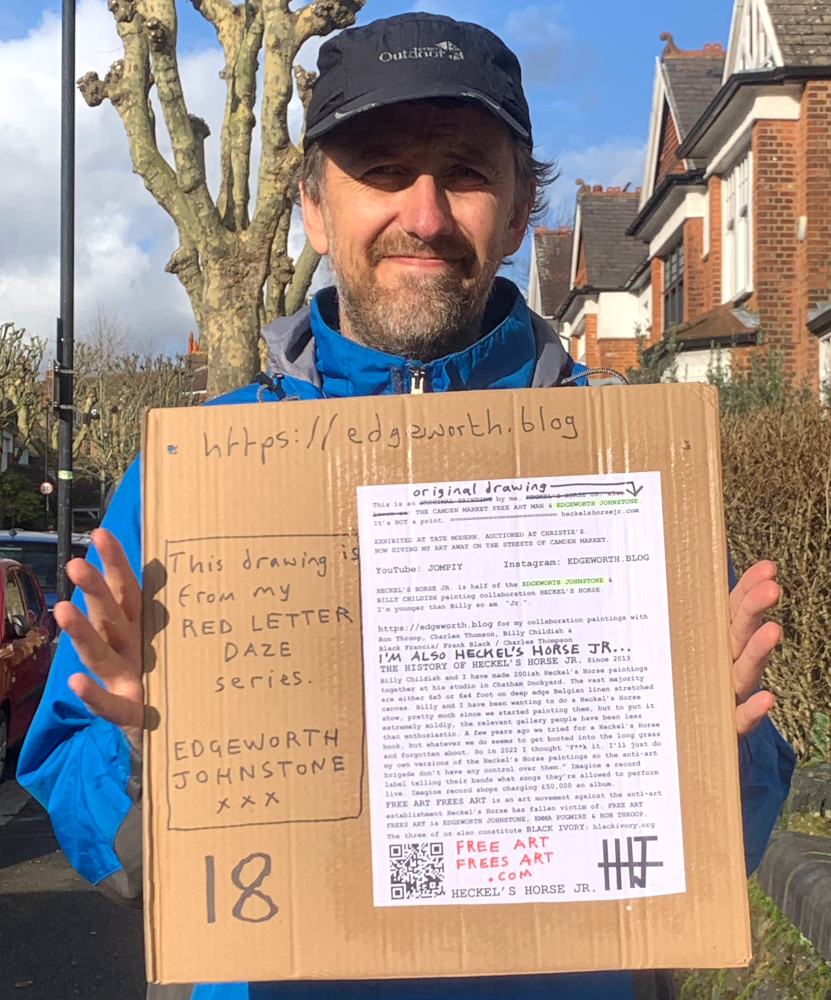 Outdoor
https://edgeworth.blog
This drawing is
from my
RED LETTER
DAZE
series.
EDGEWORTH
JOHNSTONE
xxx
18
original drawing
This is an ORIGINAL PAINTING by me. HECKEL'S HORSE JR.
THE CAMDEN MARKET FREE ART MAN & EDGEWORTH JOHNSTONE.
It's NOT a print. ======================== heckelshorsejr.com
EXHIBITED AT TATE MODERN. AUCTIONED AT CHRISTIE'S.
NOW GIVING MY ART AWAY ON THE STREETS OF CAMDEN MARKET.
YouTube: JOMPIY Instagram: EDGEWORTH.BLOG
HECKEL'S HORSE JR. is half of the EDGEWORTH JOHNSTONE &
BILLY CHILDISH painting collaboration HECKEL'S HORSE.
I'm younger than Billy so am "Jr.".
https://edgeworth.blog for my collaboration paintings with
Ron Throop, Charles Thomson, Billy Childish &
Black Francis/ Frank Black / Charles Thompson
I'M ALSO HECKEL'S HORSE JR...
THE HISTORY OF HECKEL'S HORSE JR. Since 2013
Billy Childish and I have made 200ish Heckel's Horse paintings
together at his studio in Chatham Dockyard. The vast majority
are either 6x5 or 6x4 foot on deep edge Belgian linen stretched
canvas. Billy and I have been wanting to do a Heckel's Horse
show, pretty much since we started painting them, but to put it
extremely mildly, the relevant gallery people have been less
than enthusiastic. A few years ago we tried for a Heckel's Horse
book, but whatever we do seems to get booted into the long grass
and forgotten about. So in 2022 I thought "F**k it. I'll just do
my own versions of the Heckel's Horse paintings so the anti-art
brigade don't have any control over them." Imagine a record
label telling their bands what songs they're allowed to perform
live. Imagine record shops charging £50,000 an album.
FREE ART FREES ART is an art movement against the anti-art
establishment Heckel's Horse has fallen victim of. FREE ART
FREES ART is EDGEWORTH JOHNSTONE, EMMA PUGMIRE & RON THROOP.
The three of us also constitute BLACK IVORY: blackivory.org
FREE ART
FREES ART
.COM
HECKEL'S HORSE JR.